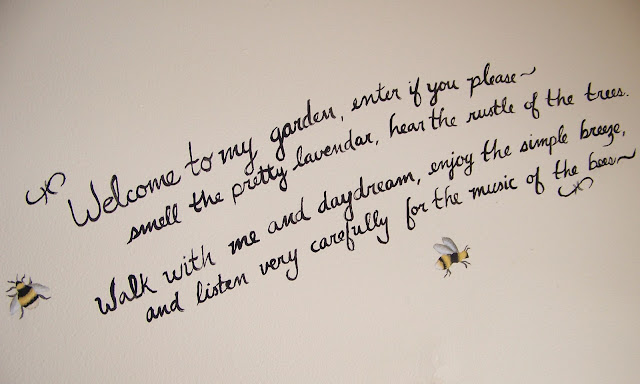 Welcome to my garden, enter if you please~
smell the pretty lavendar, hear the rustle of the trees.
Walk with me and daydream, enjoy the simple breeze,
and listen very carefully for the music of the bees~